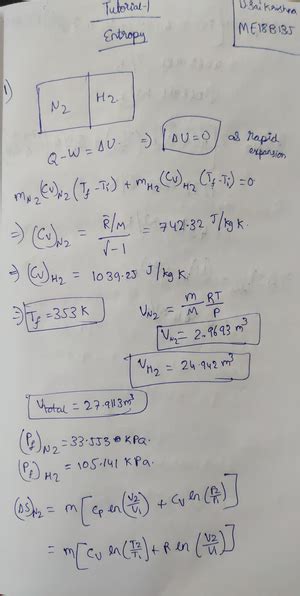 Tutorial-1
Entropy
U Sai Krishna
ME18B135
1)
N₂ H₂
Q-W = ΔU ⇒ ΔU=0 as rapid expansion
m_N₂ (Cv)_N₂ (Tf-Ti) + m_H₂ (Cv)_H₂ (Tf-Ti) =0
⇒ (Cv)_N₂ = (R̄/M)/(√-1) = 742.32 J/kg K.
⇒ (Cv)_H₂ = 1039.25 J/kg K
⇒ Tf = 353 K
V_N₂ = m/M RT/P
V_N₂ = 2.9693 m³
V_H₂ = 24.942 m³
V total = 27.9113 m³
(Pf)_N₂ = 33.553 kPa.
(Pf)_H₂ = 105.141 kPa.
(ΔS)_N₂ = m[Cp ln(V2/V1) + Cv ln(P2/P1)]
= m[Cv ln(T2/T1) + R ln(V2/V1)]